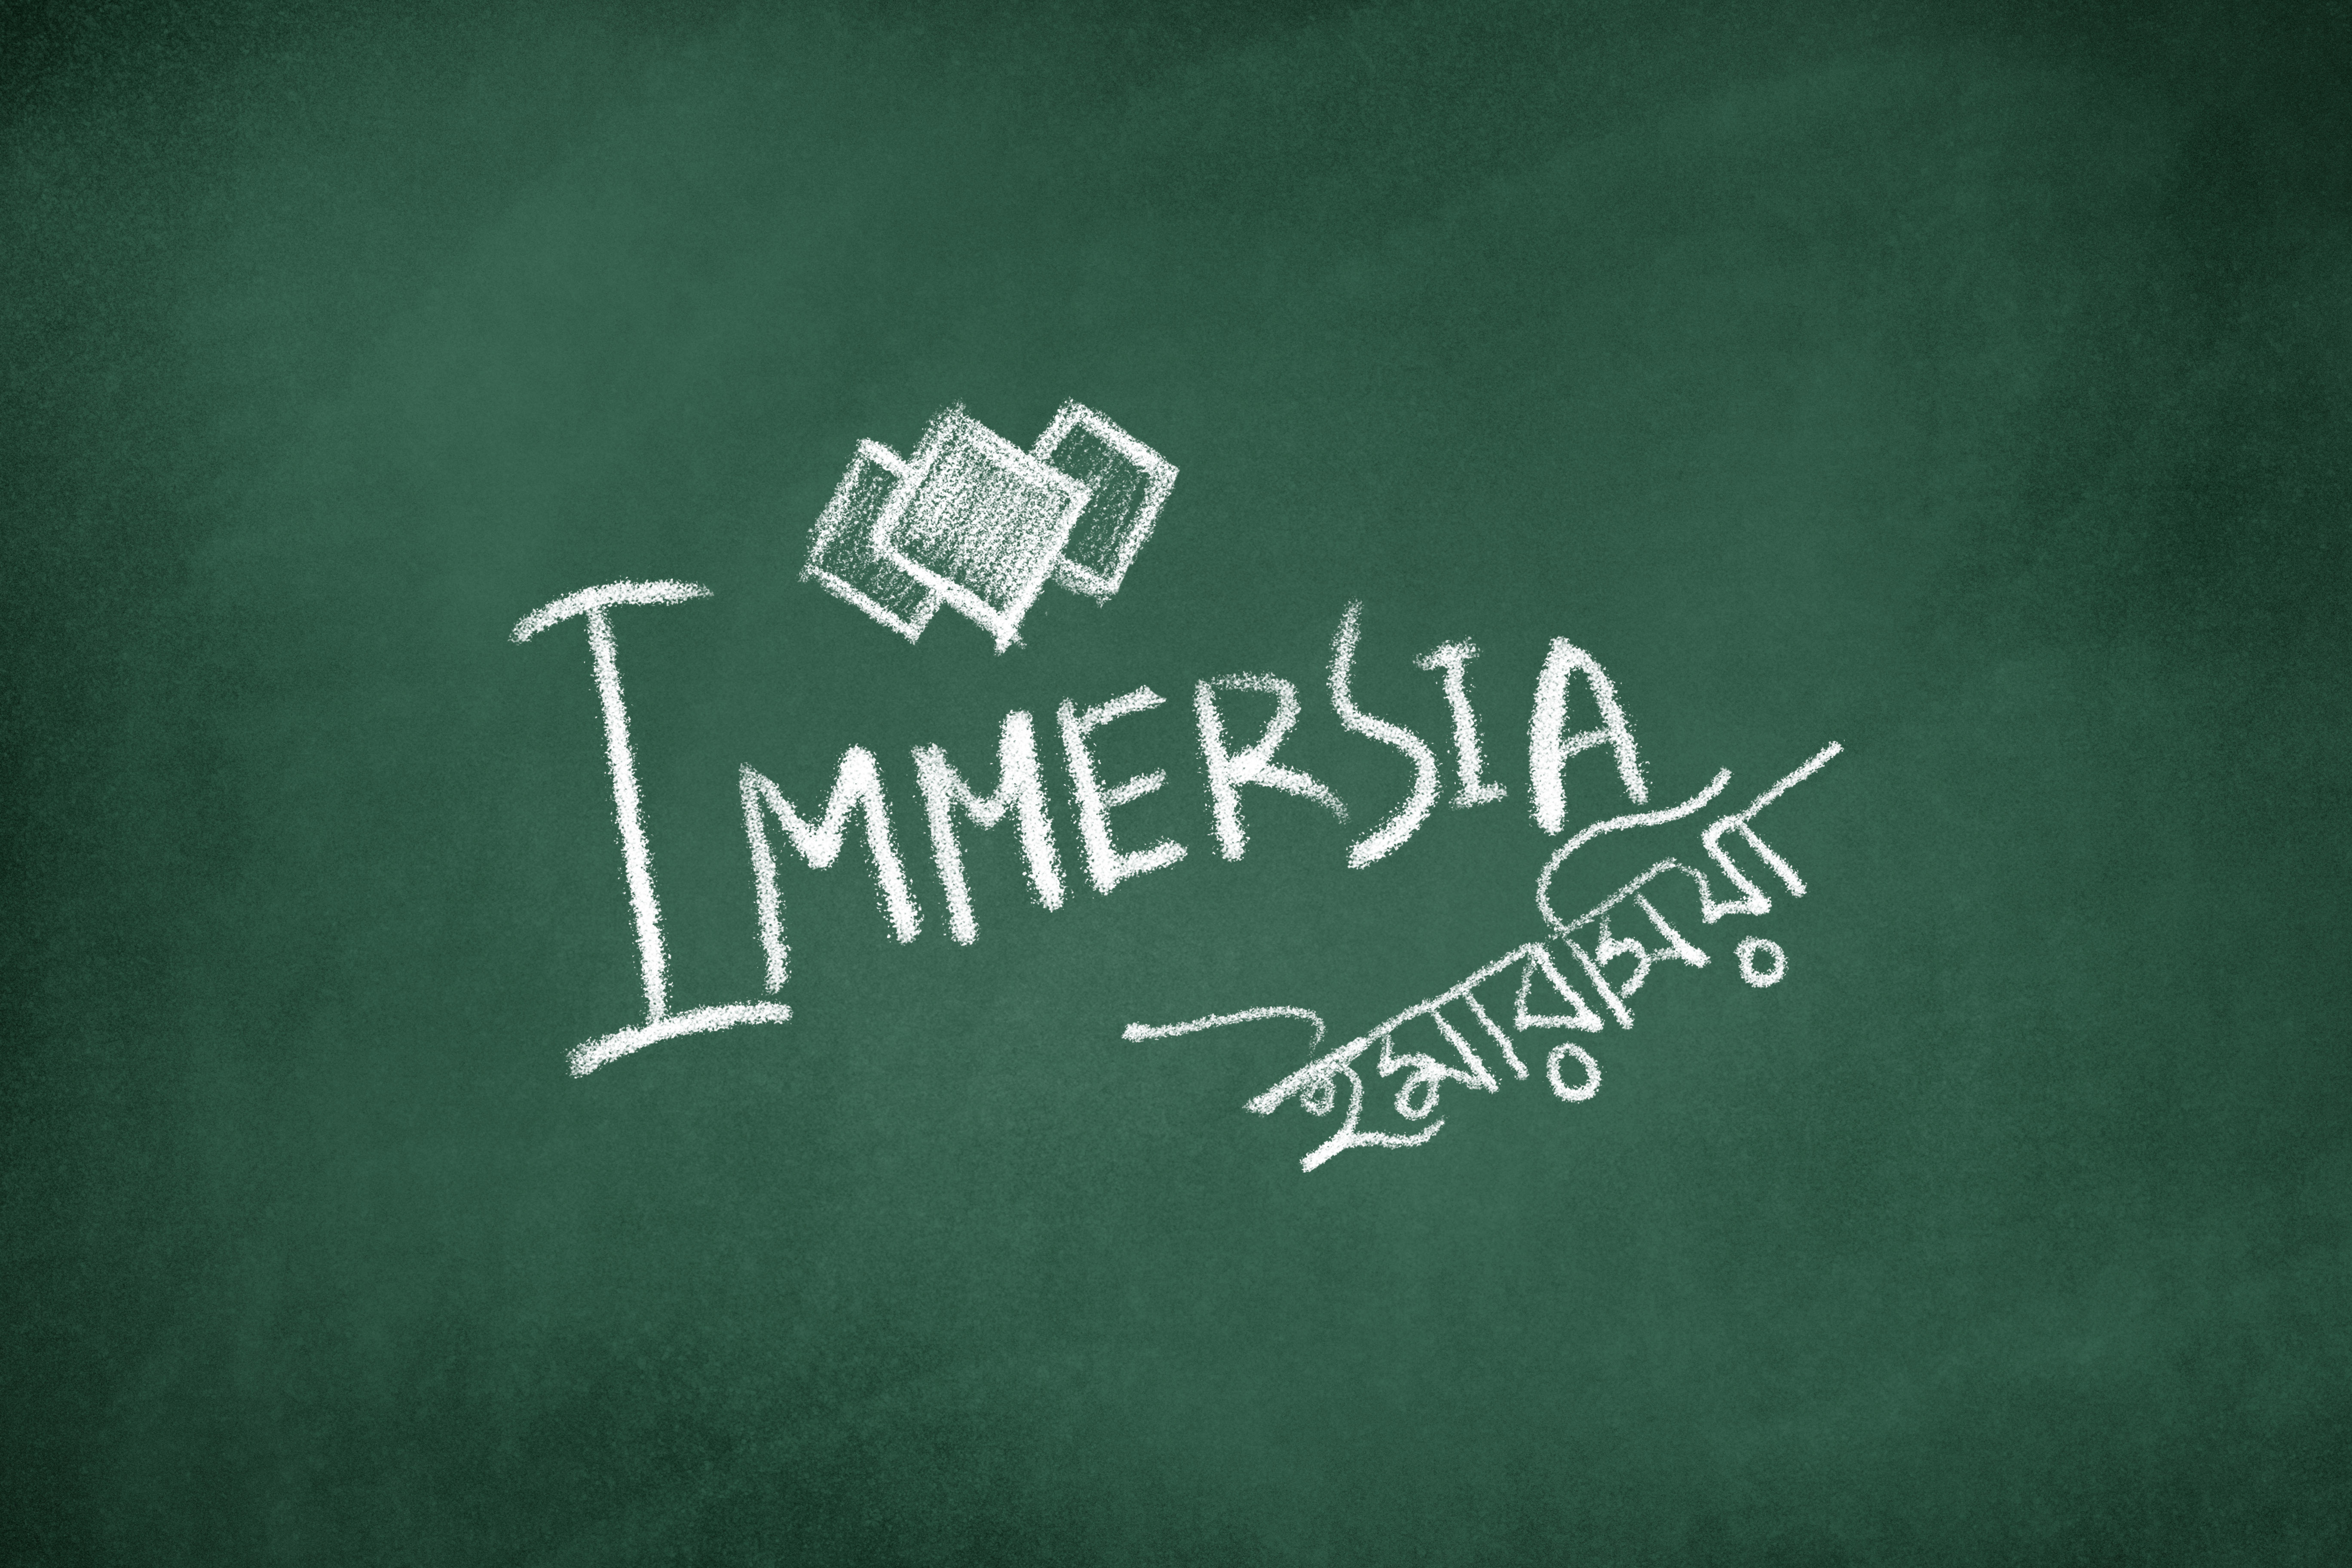 IMMERSIA
ইমারসিয়া